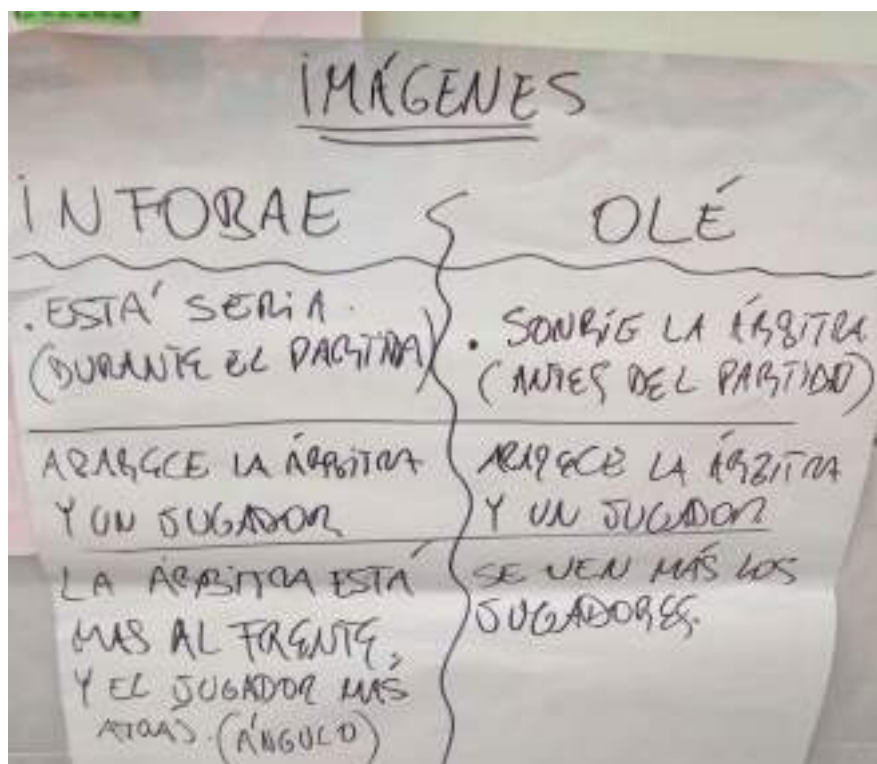 IMÁGENES
INFOBAE
OLÉ
. ESTÁ SERIA.
(DURANTE EL PARTIDO)
. SONRÍE LA ÁRBITRA
(ANTES DEL PARTIDO)
APARECE LA ÁRBITRA
Y UN JUGADOR
APARECE LA ÁRBITRA
Y UN JUGADOR
LA ÁRBITRA ESTÁ
MAS AL FRENTE,
Y EL JUGADOR MÁS
ATRÁS. (ÁNGULO)
SE VEN MÁS LOS
JUGADORES.